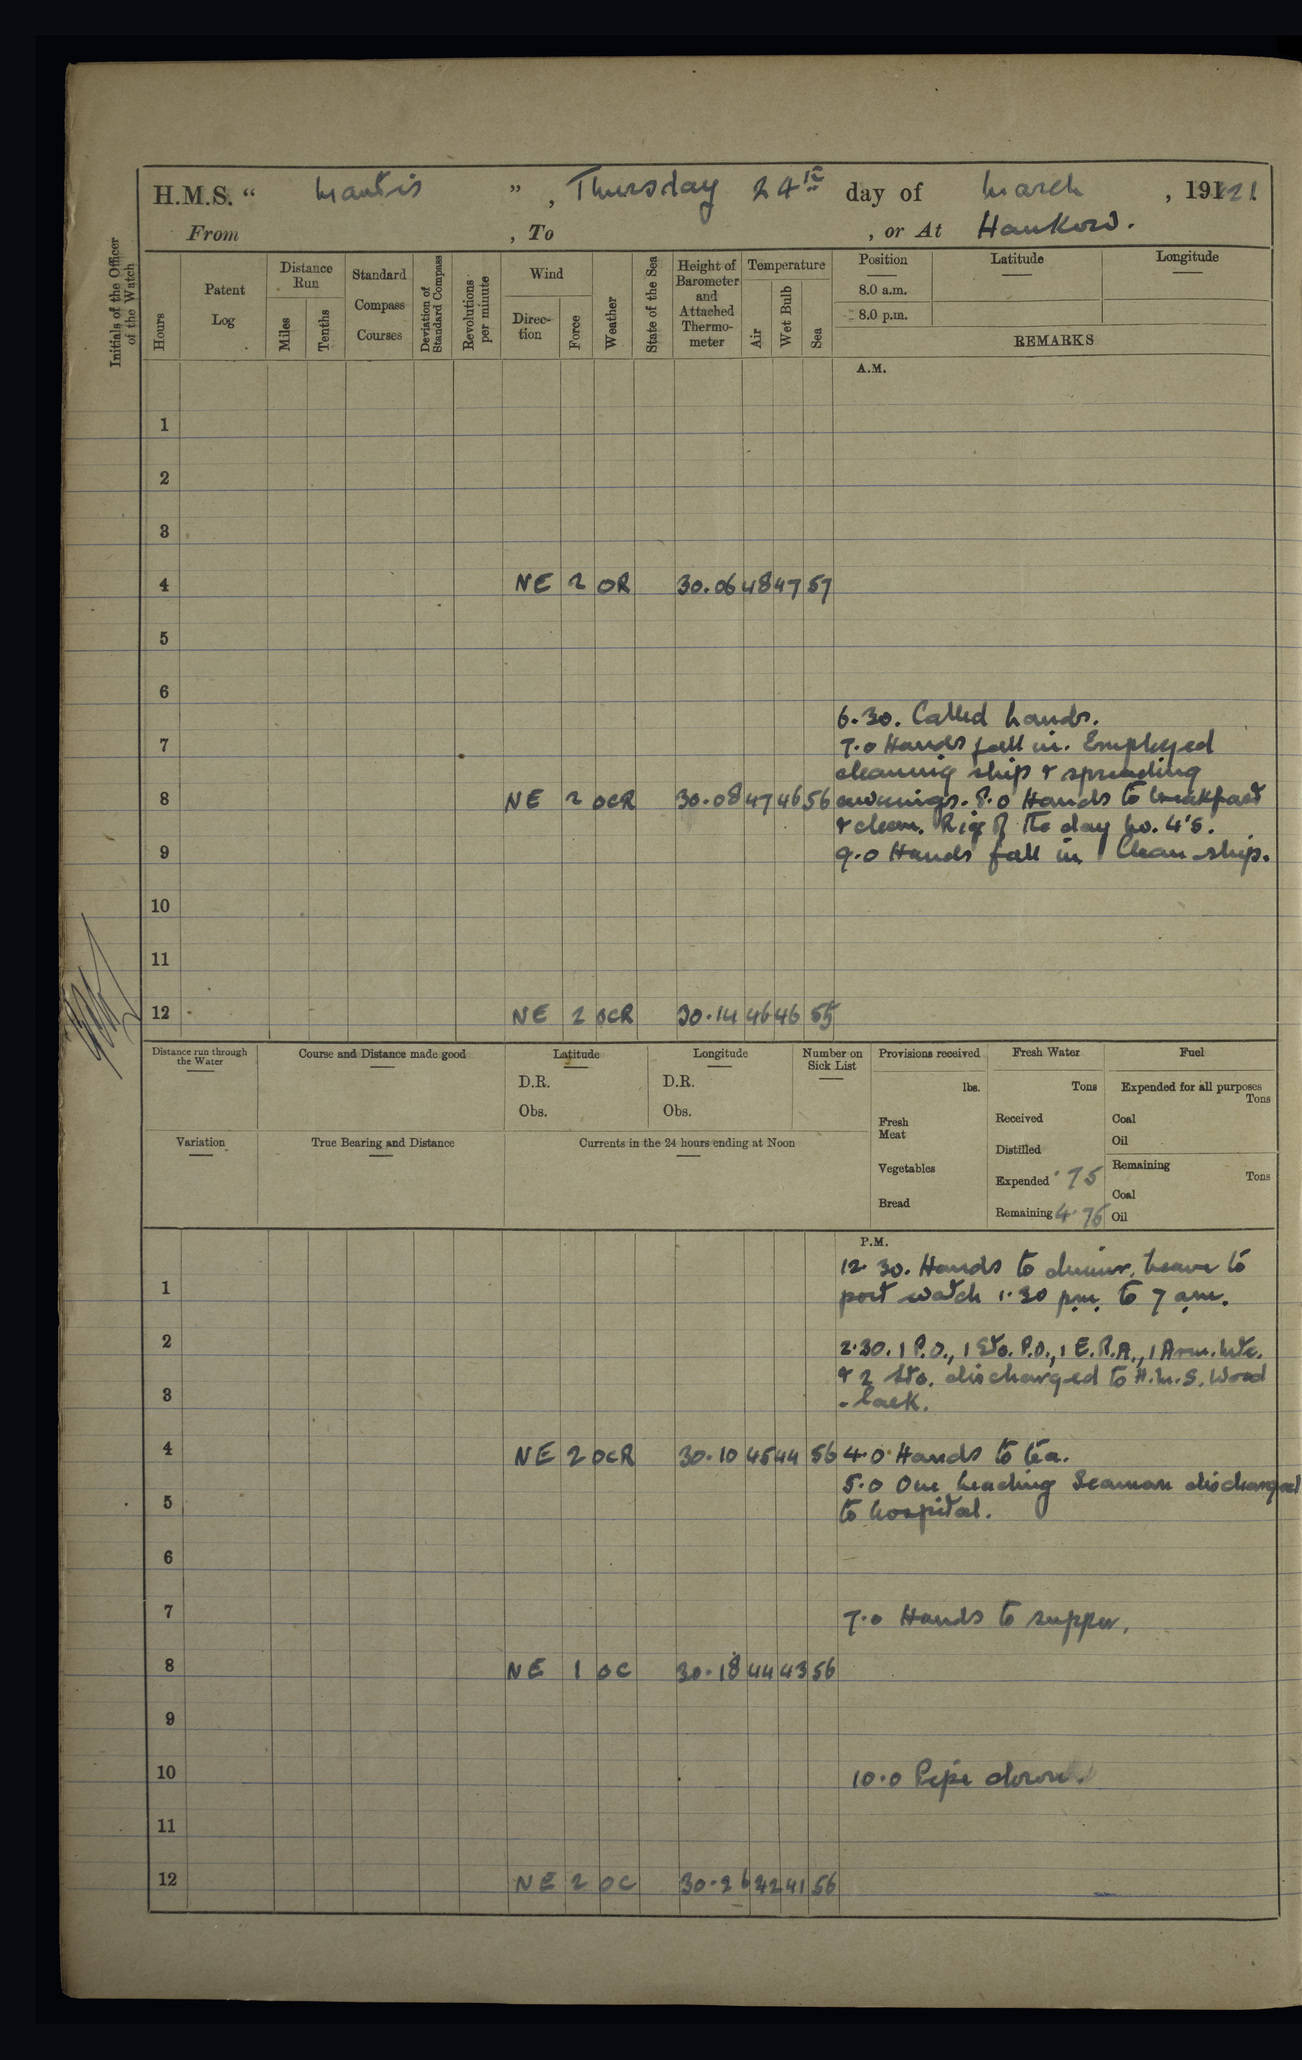 H.M.S. " Mantis ", Thursday 24th day of March, 1921
From , To , or At Hankow.
Initials of the Officer of the Watch
Hours
Patent Log
Distance Run
Miles
Tenths
Standard Compass Courses
Deviation of Standard Compass
Revolutions per minute
Wind
Direction
Force
Weather
State of the Sea
Height of Barometer and Attached Thermometer
Temperature
Air
Wet Bulb
Sea
Position
8.0 a.m.
8.0 p.m.
Latitude
Longitude
REMARKS
A.M.
1
2
3
4 NE 2 OR 30.06 48 47 57
5
6
6.30. Called hands.
7 7.0 Hands fall in. Employed
cleaning ship & spreading
8 NE 2 OCR 30.08 47 46 56 awnings. 8.0 Hands to breakfast
& clean. Rig of the day No. 4's.
9 9.0 Hands fall in Clean ship.
10
11
12 NE 2 OCR 30.14 46 46 55
Distance run through the Water
Course and Distance made good
Latitude
D.R.
Obs.
Longitude
D.R.
Obs.
Number on Sick List
Provisions received
lbs.
Fresh Meat
Vegetables
Bread
Fresh Water
Tons
Received
Distilled
Expended .75
Remaining 4.75
Fuel
Expended for all purposes
Tons
Coal
Oil
Remaining
Tons
Coal
Oil
Variation
True Bearing and Distance
Currents in the 24 hours ending at Noon
P.M.
12.30. Hands to dinner, leave to
1 port watch 1.30 pm. to 7 am.
2 2.30. 1 P.O., 1 Sto. P.O., 1 E.R.A., 1 Arm. Mte.
& 2 Sto. discharged to H.M.S. Wood
3 -lark.
4 NE 2 OCR 30.10 45 44 56 4.0 Hands to tea.
5.0 One Leading Seaman discharged
5 to hospital.
6
7 7.0 Hands to supper.
8 NE 1 OC 30.18 44 43 56
9
10 10.0 Pipe down.
11
12 NE 2 OC 30.26 42 41 56